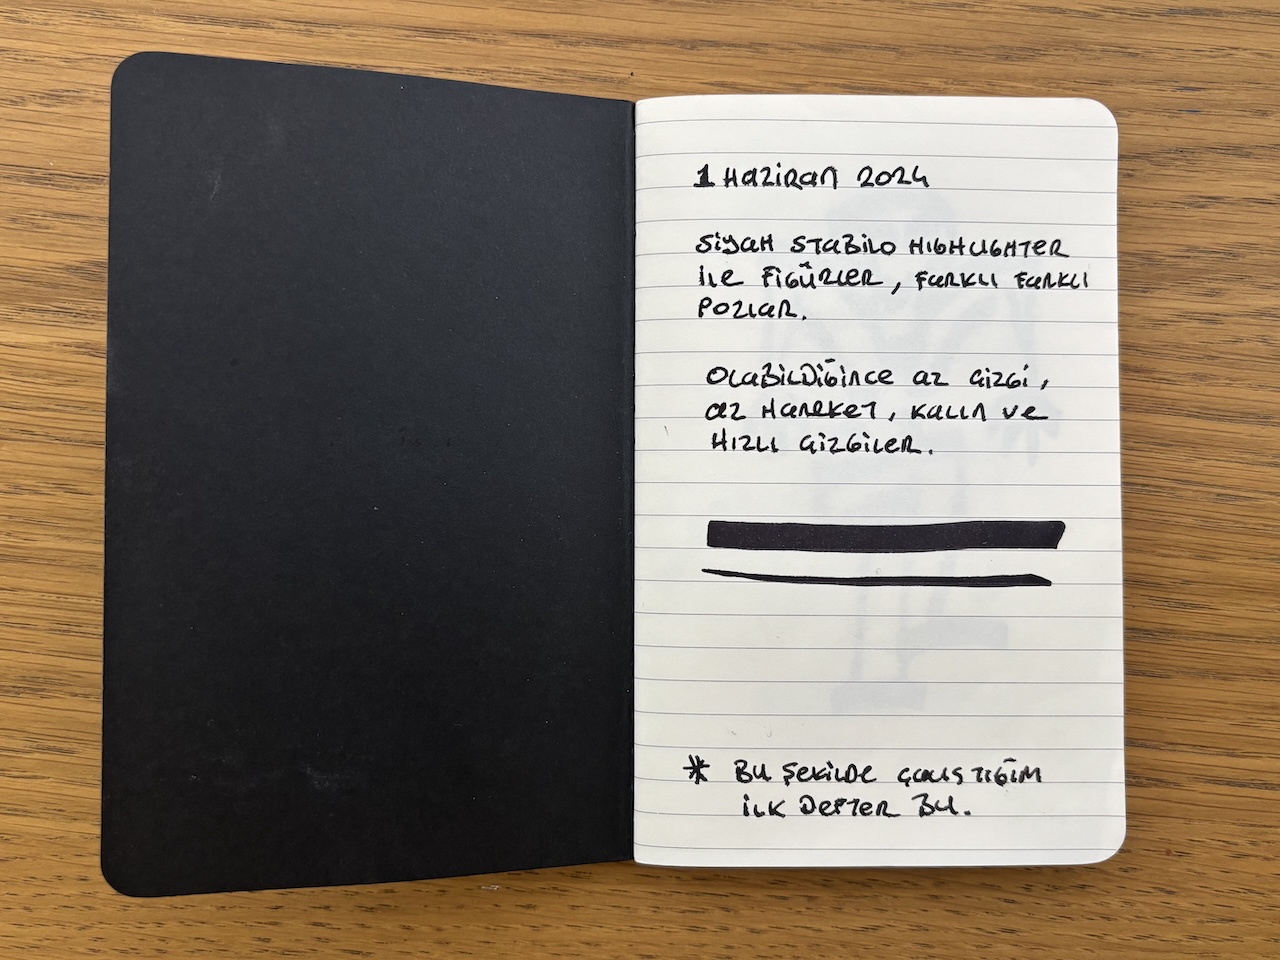 1 Haziran 2024
Siyah Stabilo Highlighter
ile Figürler, Farklı Farklı
Pozlar.
Olabildiğince az çizgi,
az Hareket, Kalın ve
Hızlı çizgiler.
* Bu şekilde çalıştığım
ilk defter bu.